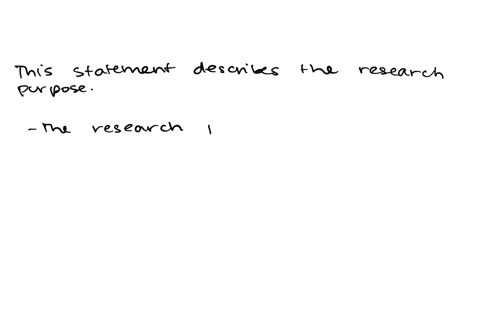 This statement describes the research
purpose.
- The research